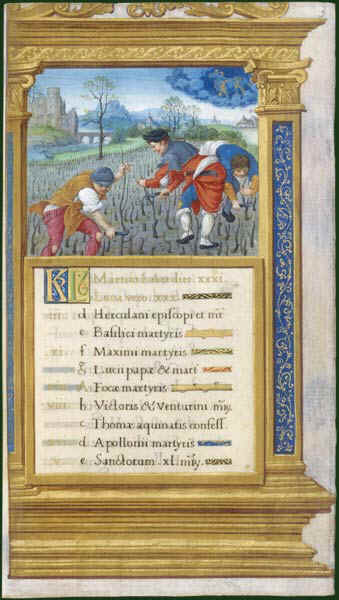 KL Martius habet dies xxxi
Luna vero xxx
d Herculani episcopi et mr
e Basilici martyris
f Maximi martyris
g Lucii papæ & mart
A Focæ martyris
b Victoris & Venturini mly
c Thomæ aquinatis confess
d Apollonii martyris
e Sanctorum xl mly